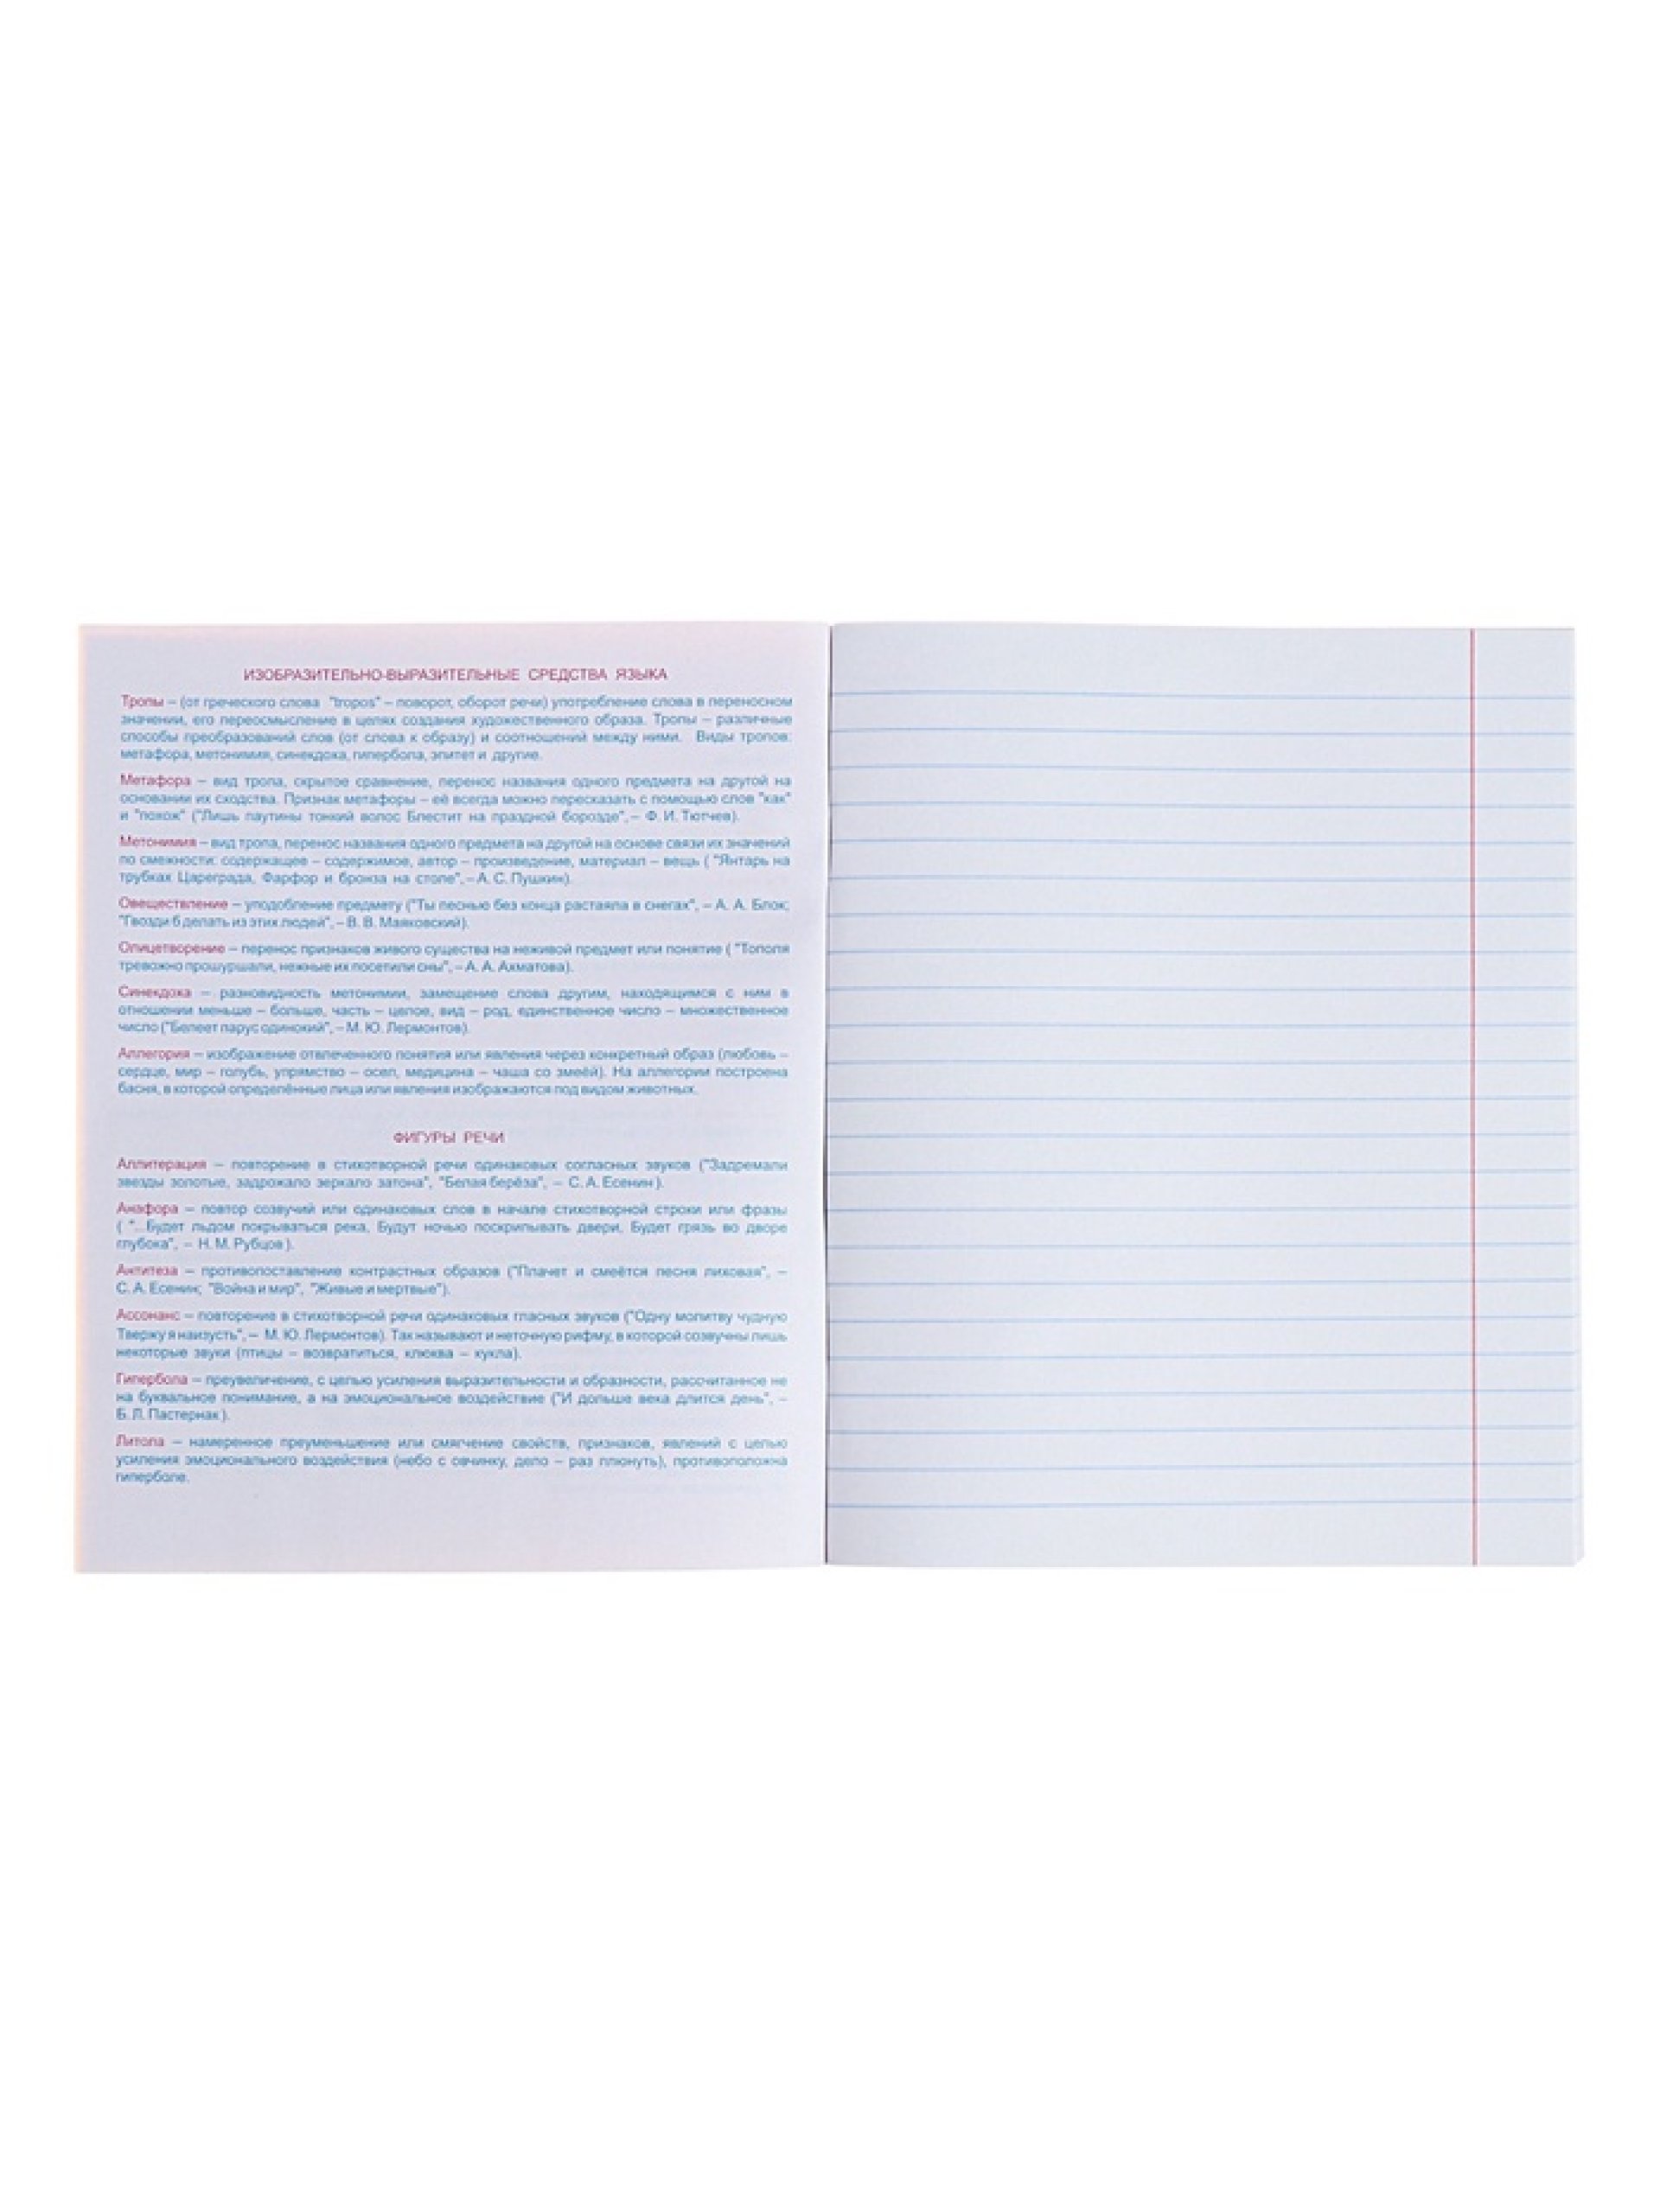 ИЗОБРАЗИТЕЛЬНО-ВЫРАЗИТЕЛЬНЫЕ СРЕДСТВА ЯЗЫКА
Тропы – (от греческого слова "tropos" – поворот, оборот речи) употребление слова в переносном
значении, его переосмысление в целях создания художественного образа. Тропы – различные
способы преобразований слов (от слова к образу) и соотношений между ними. Виды тропов:
метафора, метонимия, синекдоха, гипербола, эпитет и другие.
Метафора – вид тропа, скрытое сравнение, перенос названия одного предмета на другой на
основании их сходства. Признак метафоры – её всегда можно пересказать с помощью слов "как"
и "похож" ("Лишь паутины тонкий волос Блестит на праздной борозде", – Ф. И. Тютчев).
Метонимия – вид тропа, перенос названия одного предмета на другой на основе связи их значений
по смежности: содержащее – содержимое, автор – произведение, материал – вещь ( "Янтарь на
трубках Цареграда, Фарфор и бронза на столе", – А. С. Пушкин).
Овеществление – уподобление предмету ("Ты песнью без конца растаяла в снегах", – А. А. Блок;
"Гвозди б делать из этих людей", – В. В. Маяковский).
Олицетворение – перенос признаков живого существа на неживой предмет или понятие ( "Тополя
тревожно прошуршали, нежные их посетили сны", – А. А. Ахматова).
Синекдоха – разновидность метонимии, замещение слова другим, находящимся с ним в
отношении меньше – больше, часть – целое, вид – род, единственное число – множественное
число ("Белеет парус одинокий", – М. Ю. Лермонтов).
Аллегория – изображение отвлеченного понятия или явления через конкретный образ (любовь –
сердце, мир – голубь, упрямство – осел, медицина – чаша со змеёй). На аллегории построена
басня, в которой определённые лица или явления изображаются под видом животных.
ФИГУРЫ РЕЧИ
Аллитерация – повторение в стихотворной речи одинаковых согласных звуков ("Задремали
звезды золотые, задрожало зеркало затона", "Белая берёза", – С. А. Есенин ).
Анафора – повтор созвучий или одинаковых слов в начале стихотворной строки или фразы
( "...Будет льдом покрываться река, Будут ночью поскрипывать двери, Будет грязь во дворе
глубока", – Н. М. Рубцов ).
Антитеза – противопоставление контрастных образов ("Плачет и смеётся песня лиховая", –
С. А. Есенин; "Война и мир", "Живые и мертвые").
Ассонанс – повторение в стихотворной речи одинаковых гласных звуков ("Одну молитву чудную
Твержу я наизусть", – М. Ю. Лермонтов). Так называют и неточную рифму, в которой созвучны лишь
некоторые звуки (птицы – возвратиться, клюква – кукла).
Гипербола – преувеличение, с целью усиления выразительности и образности, рассчитанное не
на буквальное понимание, а на эмоциональное воздействие ("И дольше века длится день", –
Б. Л. Пастернак ).
Литола – намеренное преуменьшение или смягчение свойств, признаков, явлений с целью
усиления эмоционального воздействия (небо с овчинку, дело – раз плюнуть), противоположна
гиперболе.